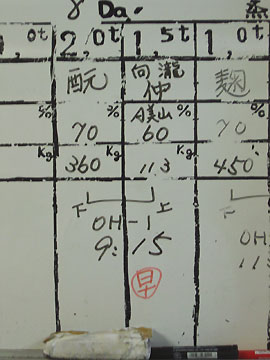 8 Da.
0t 2,0t 1,5t 1,0t
酛 向瀧 麹
仲
S/% % A美山 % %
70 60 70
Kg Kg Kg Kg
360 113 450
下 上 下
OH-1 OH
9:15 11
早